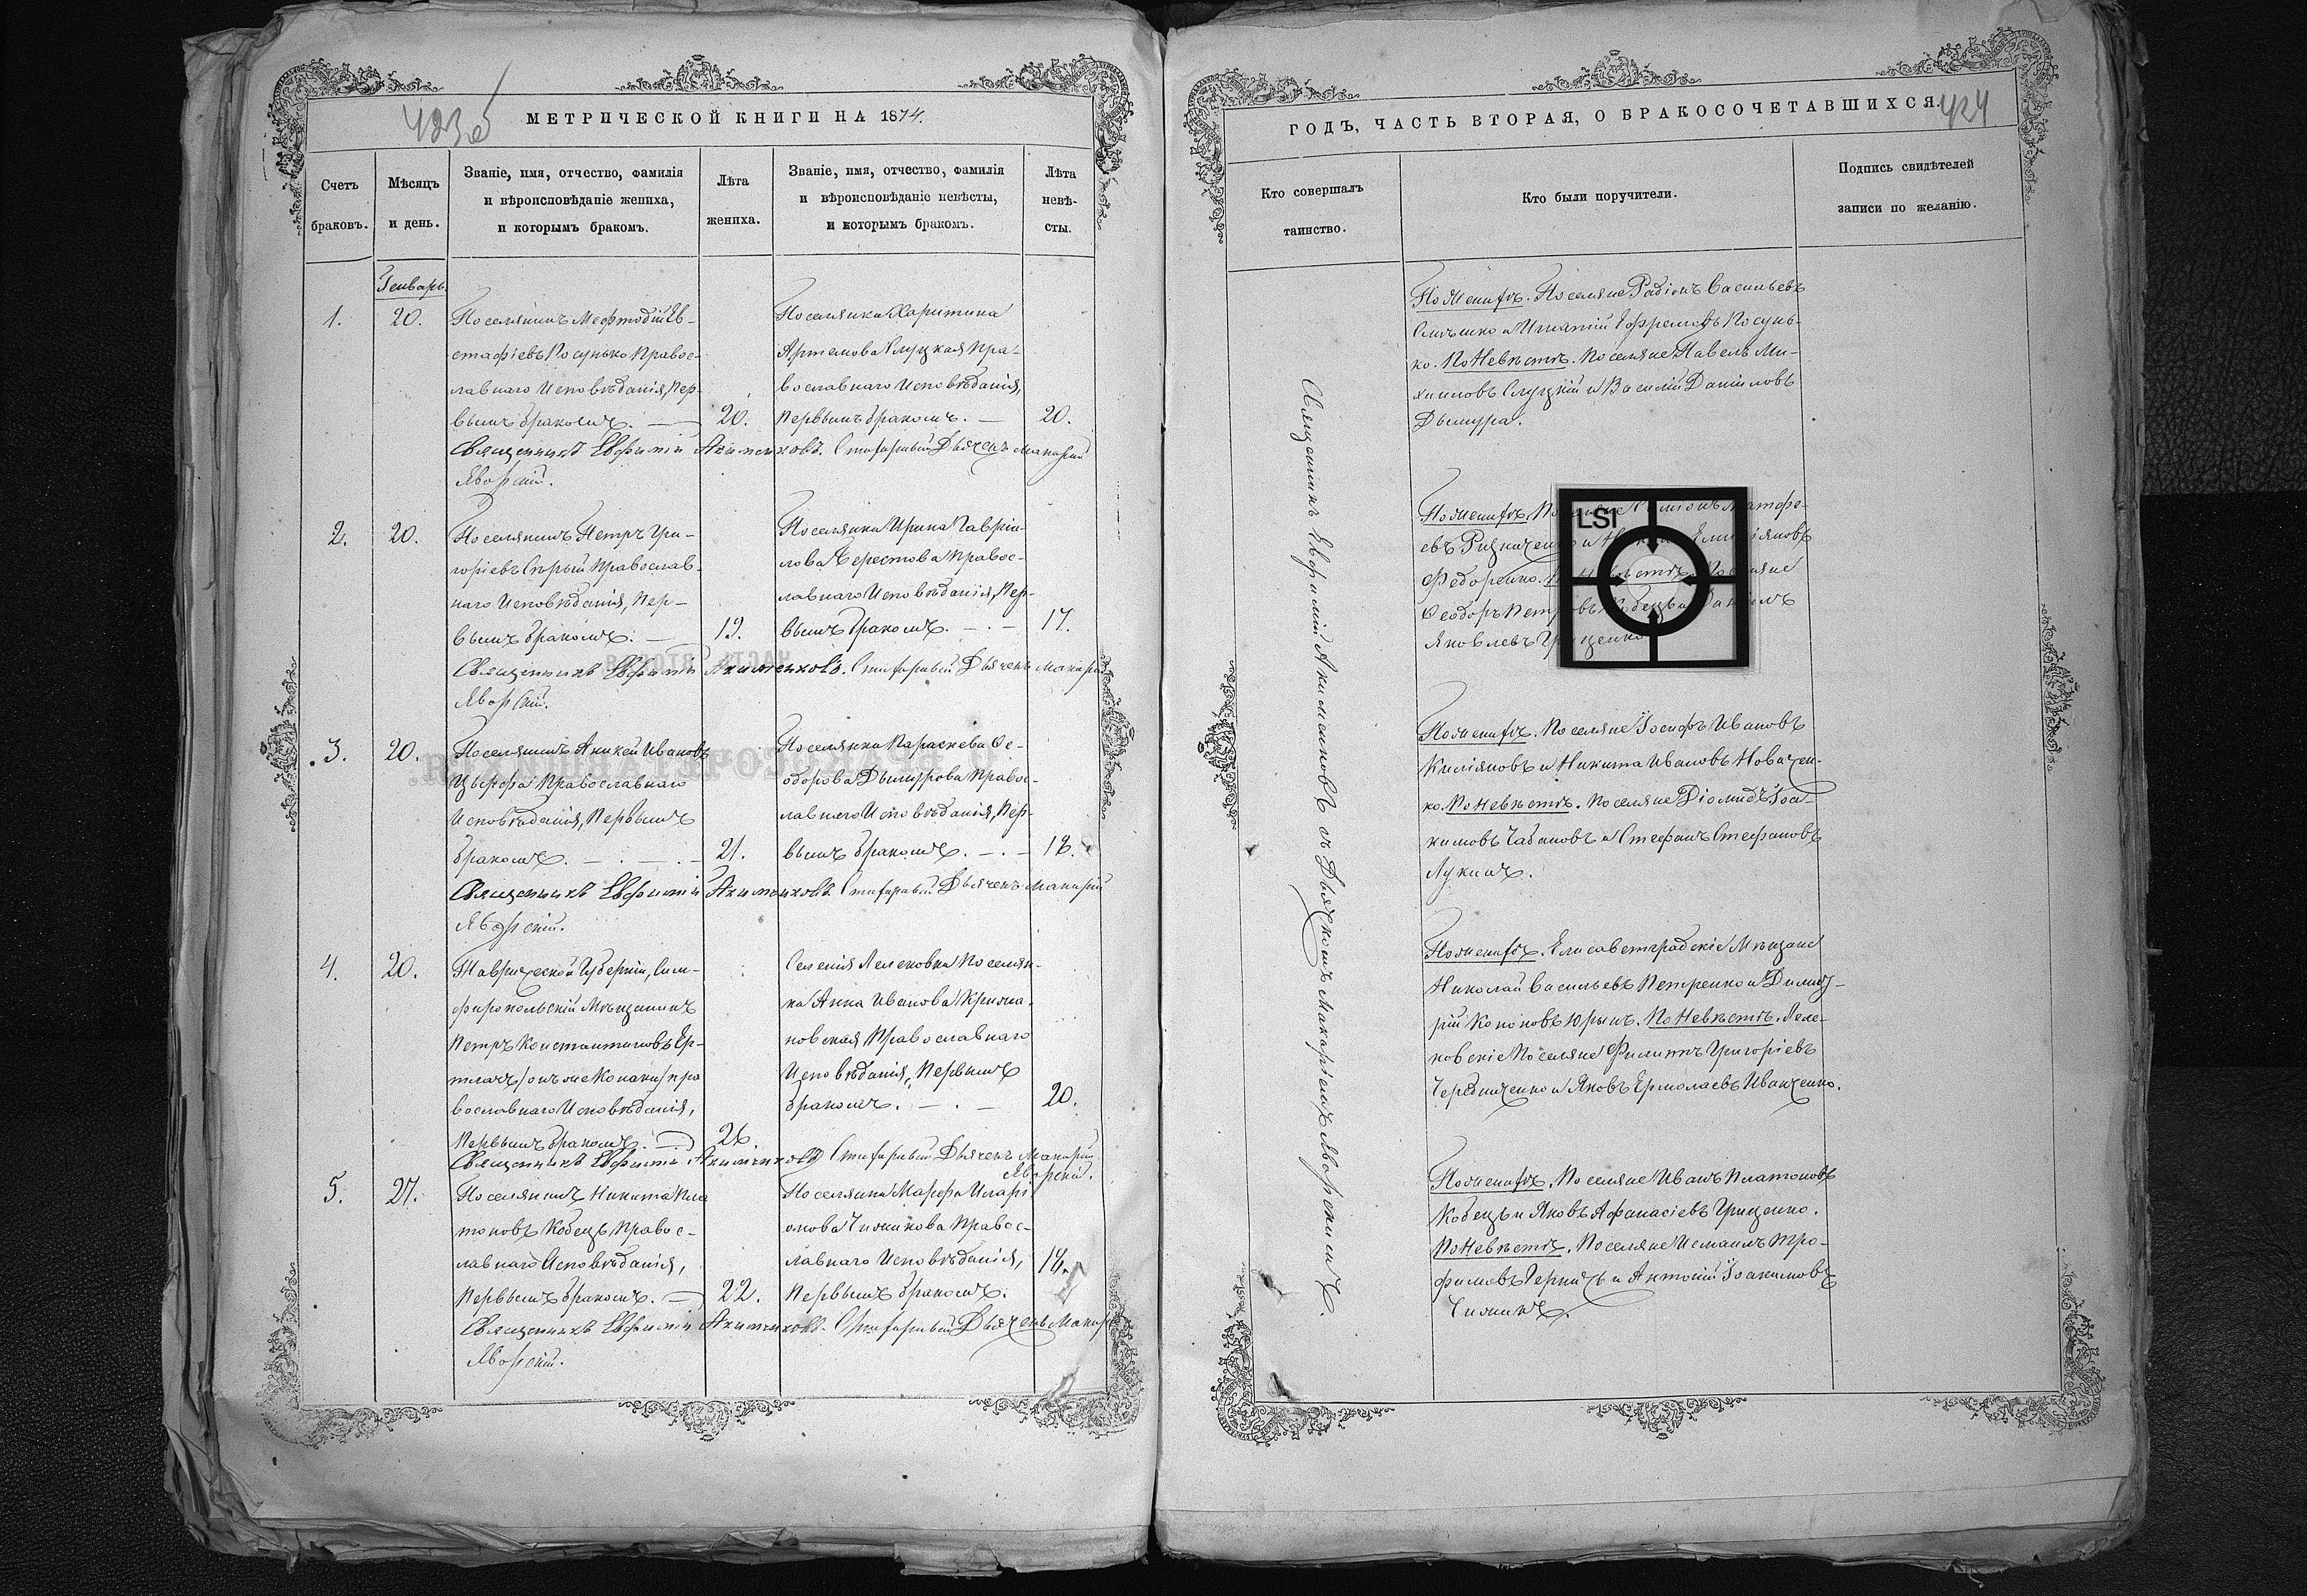 423об
МЕТРИЧЕСКОЙ КНИГИ НА 1874.
Счетъ браковъ.
Мѣсяцъ и день.
Званіе, имя, отчество, фамилія
и вѣроисповѣданіе жениха,
и которымъ бракомъ.
Лѣта жениха.
Званіе, имя, отчество, фамилія
и вѣроисповѣданіе невѣсты,
и которымъ бракомъ.
Лѣта невѣ-
сты.
Генварь.
1.
20.
Поселянинъ Мефтодій Ев-
стафіевъ Косунько Правос-
лавнаго Исповѣданія, Пер-
вымъ бракомъ. —
20.
Поселянка Харитина
Артемова Слуцкая Пра-
вославнаго Исповѣданія,
Первымъ бракомъ. —
20.
Священникъ Евфимій Акименковъ. Стихарный Дьячекъ Макарій
Яворскій.
2.
20.
Поселянинъ Петръ Гри-
горіевъ Сѣрый Православ-
наго Исповѣданія, Пер-
вымъ бракомъ. —
19.
Поселянка Ирина Гавріи-
лова Берестова Правос-
лавнаго Исповѣданія, Пер-
вымъ бракомъ. — . —
17.
Священникъ Евфимій Акименковъ. Стихарный Дьячекъ Макарій
Яворскій.
3.
20.
Поселянинъ Аникей Ивановъ
Цырфа Православнаго
Исповѣданія, Первымъ
бракомъ. — . — . —
21.
Поселянка Параскева Ѳе-
одорова Дымурова Правос-
лавнаго Исповѣданія, Пер-
вымъ бракомъ. — . —
18.
Священникъ Евфимій Акименковъ. Стихарный Дьячекъ Макарій
Яворскій.
4.
20.
Таврической Губерніи, Сим-
феропольскій Мѣщанинъ
Петръ Константиновъ Ер-
онъ же Конаки/ пра
вославнаго Исповѣданія,
Первымъ бракомъ. —
26.
Селенія Лелековки Поселян-
ка Анна Иванова
новская Православнаго
Исповѣданія, Первымъ
бракомъ. — . —
20.
Священникъ Евфимій Акименковъ Стихарный Дьячекъ Макарій
Яворскій.
5.
27.
Поселянинъ Никита Пла
тоновъ Кобецъ Правос-
лавнаго Исповѣданія,
Первымъ бракомъ. —
22.
Поселянка Марфа Иларі
онова Чижикова Правос-
лавнаго Исповѣданія,
Первымъ бракомъ.
18.
Священникъ Евфимій Акименковъ. Стихарный Дьячекъ Макарій
Яворскій.
424
ГОДЪ, ЧАСТЬ ВТОРАЯ, О БРАКОСОЧЕТАВШИХСЯ.
Кто совершалъ
таинство.
Кто были поручители.
Подпись свидѣтелей
записи по желанію.
Священникъ Евфимій Акименковъ съ Дьячкомъ Макаріемъ Яворскимъ.
По Женихѣ. Поселяне Родіонъ Васильевъ
и Игнатій Ефремовъ Косунь-
ко. По Невѣстѣ. Поселяне Павелъ Ми-
хаиловъ Слуцкій и Василій Даніиловъ
Дымура.
По Женихѣ.
евъ и
Федоренко.
Ѳеодоръ Петровъ Кобецъ и
Яковлевъ Гриценко
LSI
По Женихѣ. Поселяне Іосифъ Ивановъ
Киліяновъ и Никита Ивановъ Новачен-
ко. По Невѣстѣ. Поселяне Діомидъ Іоа-
кимовъ Чабановъ и Стефанъ Стефановъ
Лукинъ.
По Женихѣ. Елисаветградскіе Мѣщане
Николай Васильевъ Петренко и Димит-
рій Кононовъ Юрынъ. По Невѣстѣ. Леле-
ковскіе Поселяне Филиппъ Григоріевъ
Чередниченко и Яковъ Ермолаевъ Иванченко.
По Женихѣ. Поселяне Иванъ Платоновъ
Кобецъ и Яковъ Афанасіевъ Гриценко.
По Невѣстѣ. Поселяне Исмаилъ Тро-
фимовъ и Антоній Іоакимовъ
Чижикъ.